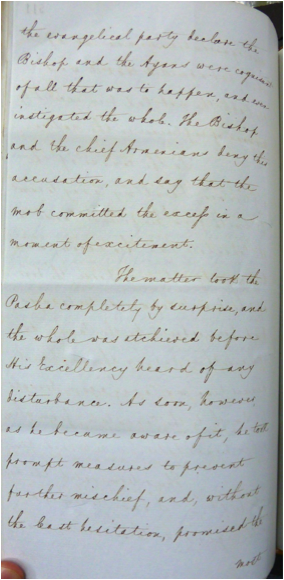 the evangelical party declare the
Bishop and the Ayans were cognizant
of all that was to happen, and even
instigated the whole. The Bishop
and the chief Armenians deny this
accusation, and say that the
mob committed the excess in a
moment of excitement.
The matter took the
Pasha completely by surprise, and
the whole was atchieved before
His Excellency heard of any
disturbance. As soon, however
as he became aware of it, he took
prompt measures to prevent
further mischief, and, without
the least hesitation, promised the
most